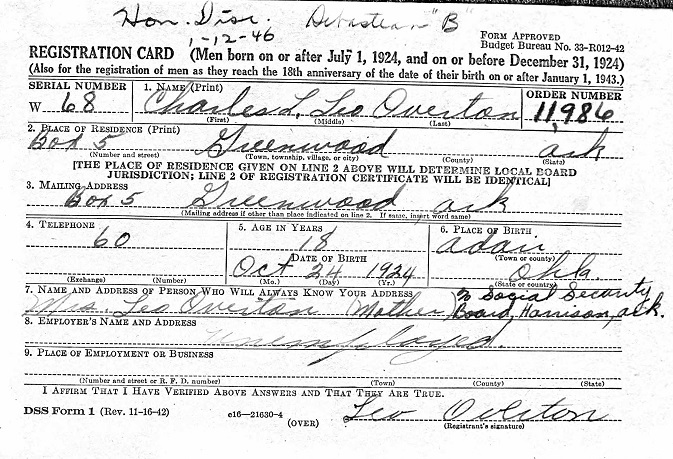 Hon. Disc. Sebastian "B"
1-12-46
FORM APPROVED
Budget Bureau No. 33-R012-42
REGISTRATION CARD (Men born on or after July 1, 1924, and on or before December 31, 1924)
(Also for the registration of men as they reach the 18th anniversary of the date of their birth on or after January 1, 1943.)
SERIAL NUMBER 1. NAME (Print) ORDER NUMBER
W 68 Charles L. Leo Overton 11,986
(First) (Middle) (Last)
2. PLACE OF RESIDENCE (Print)
Box 5 Greenwood ark
(Number and street) (Town, township, village, or city) (County) (State)
[THE PLACE OF RESIDENCE GIVEN ON LINE 2 ABOVE WILL DETERMINE LOCAL BOARD
JURISDICTION; LINE 2 OF REGISTRATION CERTIFICATE WILL BE IDENTICAL]
3. MAILING ADDRESS
Box 5 Greenwood ark
(Mailing address if other than place indicated on line 2. If same, insert word same)
4. TELEPHONE 5. AGE IN YEARS 6. PLACE OF BIRTH
60 18 adair
DATE OF BIRTH (Town or county)
Oct 24 1924 Okla.
(Exchange) (Number) (Mo.) (Day) (Yr.) (State or country)
7. NAME AND ADDRESS OF PERSON WHO WILL ALWAYS KNOW YOUR ADDRESS % Social Security
Mrs. Leo Overton Mother Board, Harrison, ark.
8. EMPLOYER'S NAME AND ADDRESS
Unemployed.
9. PLACE OF EMPLOYMENT OR BUSINESS
(Number and street or R. F. D. number) (Town) (County) (State)
I AFFIRM THAT I HAVE VERIFIED ABOVE ANSWERS AND THAT THEY ARE TRUE.
DSS Form 1 (Rev. 11-16-42) e16—21630-4 Leo Overton
(OVER) (Registrant's signature)